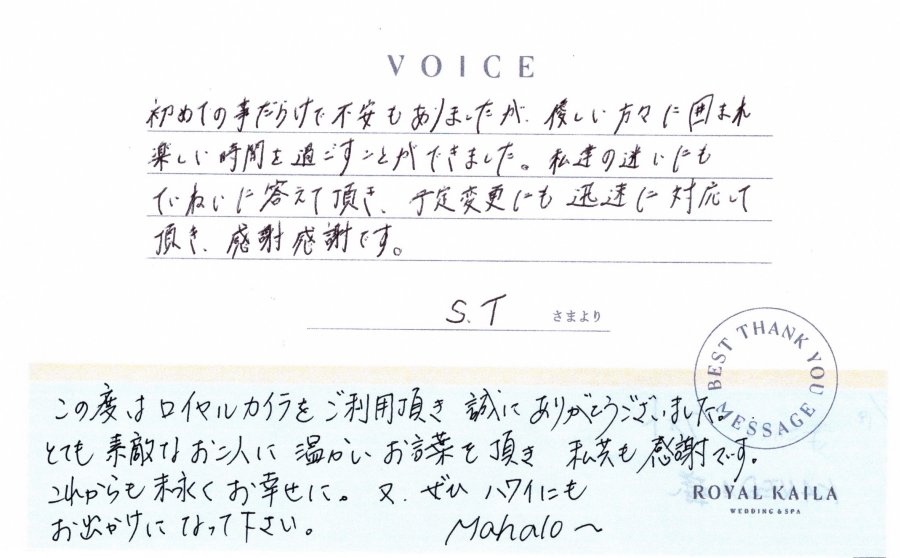 VOICE
初めての事だらけで不安もありましたが、優しい方々に囲まれ
楽しい時間を過ごすことができました。私達の迷いにも
ていねいに答えて頂き、予定変更にも迅速に対応して
頂き、感謝感謝です。
S.T さまより
BEST THANK YOU MESSAGE
この度はロイヤルカイラをご利用頂き 誠にありがとうございました。
とても素敵なお二人に温かいお言葉を頂き 私共も感謝です。
これからも末永くお幸せに。又、ぜひハワイにも
お出かけになって下さい。 Mahalo～
ROYAL KAILA
WEDDING & SPA